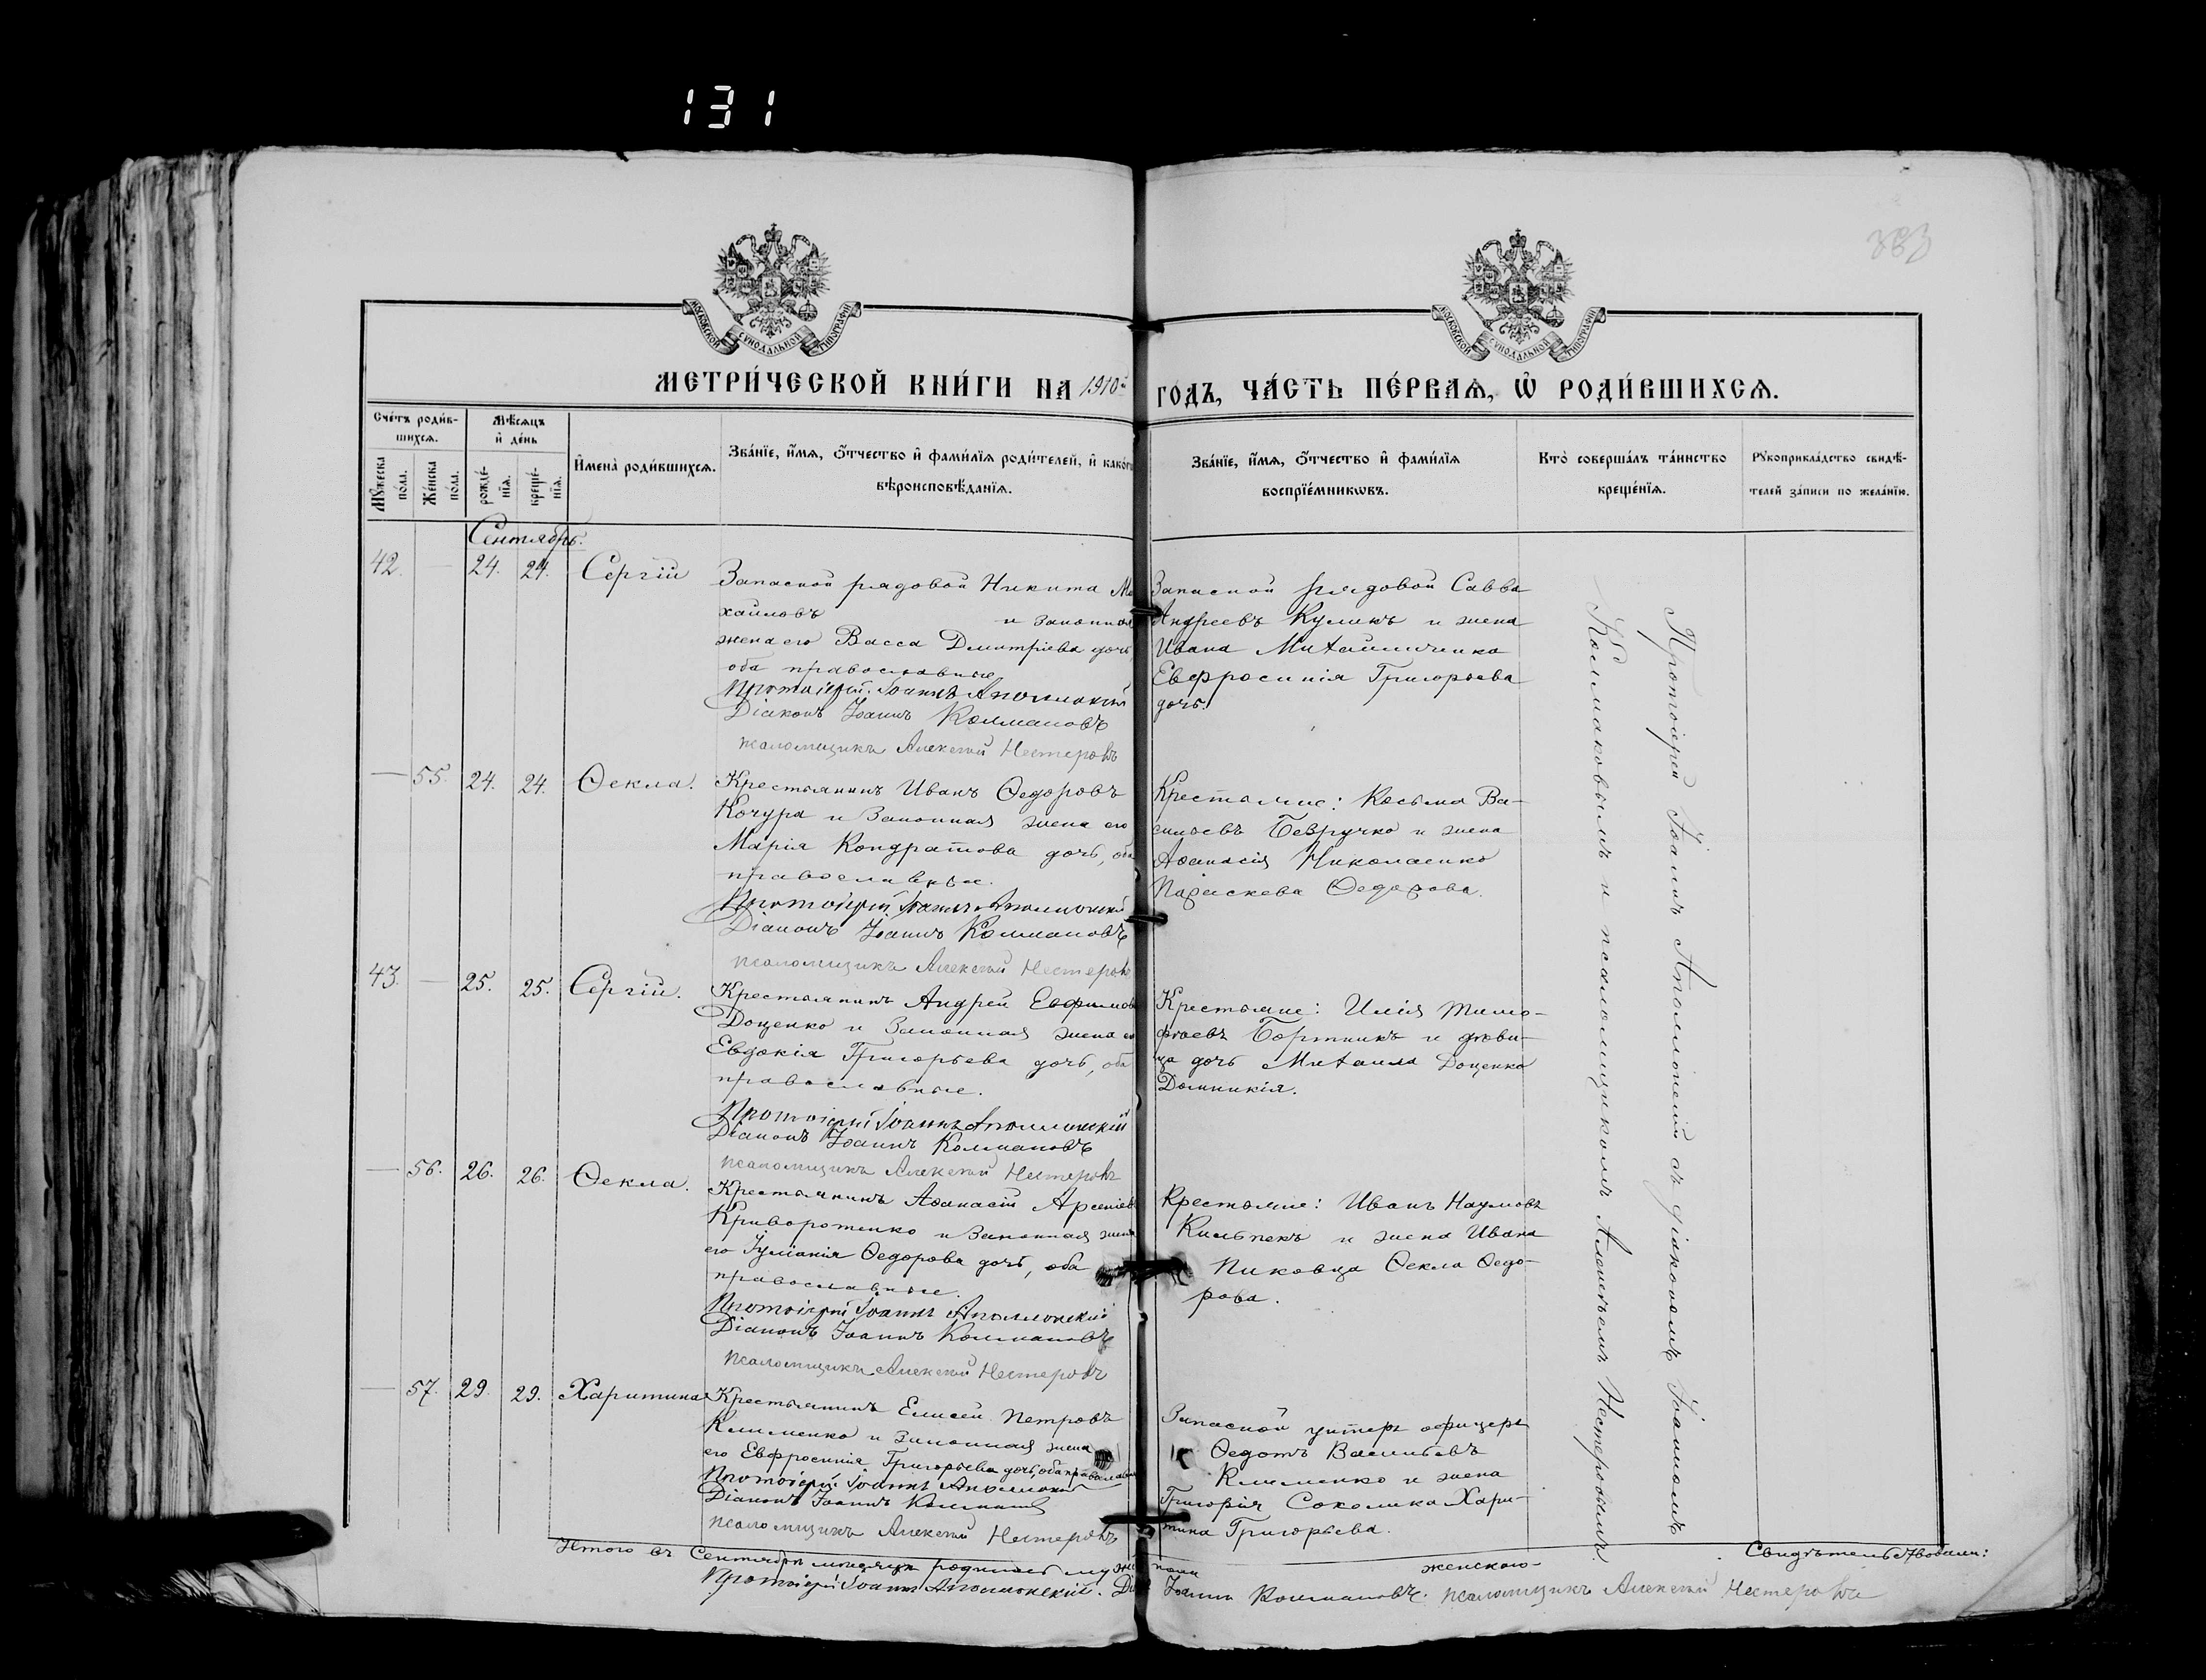 131
383
МОСКОВСКОЙ СѴНОДАЛЬНОЙ ТИПОГРАФІИ
МОСКОВСКОЙ СѴНОДАЛЬНОЙ ТИПОГРАФІИ
МЕТРИ́ЧЕСКОЙ КНИ́ГИ НА 1910й ГОДЪ, ЧА́СТЬ ПЕ́РВАѦ, Ѡ РОДИ́ВШИХСѦ.
Сче́тъ роди́в-
шихсѧ.
Мꙋ́жеска по́ла.
Же́нска по́ла.
Мѣ́сѧцъ
и де́нь
рожде́-
нїѧ.
креще́-
нїѧ.
Имена̀ роди́вшихсѧ.
Зва́нїе, и́мѧ, о́тчество и фами́лїѧ роди́телей, и како́гѡ
вѣроисповѣ́данїѧ.
Зва́нїе, и́мѧ, о́тчество и фами́лїѧ
воспрїе́мникѡвъ.
Кто̀ соверша́лъ та́инство
креще́нїѧ.
Рꙋкоприкла́дство свидѣ́-
телей за́писи по жела́нїю.
Сентябрь.
42. — 24. 24. Сергій
Запасной рядовой Никита Ми
хайловъ и законная
жена его Васса Димитріева дочь,
оба православные
Протоіерей Іоаннъ Аполлонскій
Діаконъ Іоаннъ Колмаковъ
псаломщикъ Алексѣй Нестеровъ
Запасной рядовой Савва
Андреевъ Куликъ и жена
Ивана Михайличенко
Евфросинія Григорьева
дочь.
— 55. 24. 24. Ѳекла.
Крестьянинъ Иванъ Ѳедоровъ
Кочура и Законная жена его
Марія Кондратова дочь, оба
православные.
Протоіерей Іоаннъ Аполлонскій
Діаконъ Іоаннъ Колмаковъ
псаломщикъ Алексѣй Нестеровъ
Крестьяне: Косьма Ва-
сильевъ Безручко и жена
Аѳанасія Николаенко
Параскева Ѳедорова.
43. — 25. 25. Сергій.
Крестьянинъ Андрей Евфимовъ
Доценко и Законная жена его
Евдокія Григорьева дочь, оба
православные.
Протоіерей Іоаннъ Аполлонскій
Діаконъ Іоаннъ Колмаковъ
псаломщикъ Алексѣй Нестеровъ
Крестьяне: Илія Тимо-
фѣевъ Бортникъ и дѣви-
ца дочь Михаила Доценко
Домникія.
— 56. 26. 26. Ѳекла.
Крестьянинъ Аѳанасій Арсеніевъ
Криворотенко и Законная жена
его Іуліанія Ѳедорова дочь, оба
православные.
Протоіерей Іоаннъ Аполлонскій
Діаконъ Іоаннъ Колмаковъ
псаломщикъ Алексѣй Нестеровъ
Крестьяне: Иванъ Наумовъ
и жена Ивана
Пиковца Ѳекла Ѳедо-
рова.
— 57. 29. 29. Харитина
Крестьянинъ Елисей Петровъ
Клименко и Законная жена
его Евфросинія Григорьева дочь, оба православн
Протоіерей Іоаннъ Аполлонскій
Діаконъ Іоаннъ Колмаковъ
псаломщикъ Алексѣй Нестеровъ
Запасной унтеръ офицеръ
Ѳедотъ Васильевъ
Клименко и жена
Григорія Соколика Хари-
тина Григорьева.
Протоіерей Іоаннъ Аполлонскій съ діакономъ Іоанномъ
Колмаковымъ и псаломщикомъ Алексѣемъ Нестеровымъ.
Итого въ Сентябрѣ мѣсяцѣ родилось муж пола женскаго
Свидѣтельствовали:
Протоіерей Іоаннъ Аполлонскій. Діа Іоаннъ Колмаковъ. псаломщикъ Алексѣй Нестеровъ